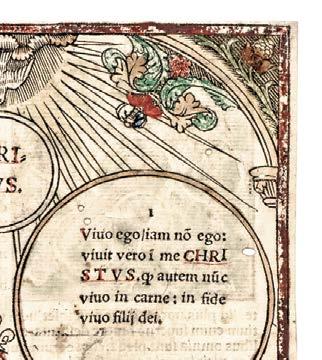 RI-
VS.
1
Viuo ego/iam nõ ego:
viuit vero ĩ me CHRI
STVS.ꝙ autem nũc
viuo in carne: in fide
viuo filij dei.